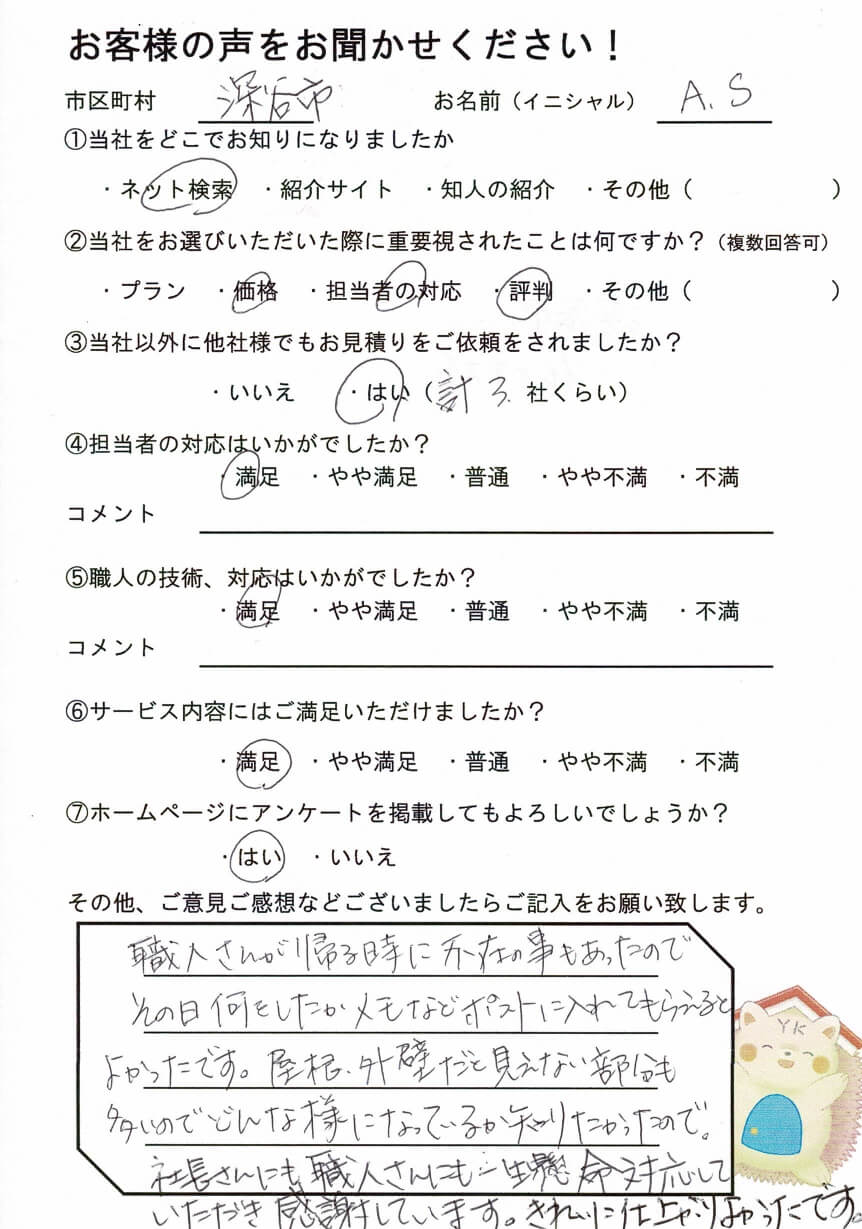 お客様の声をお聞かせください！
市区町村 深谷市 お名前（イニシャル） A.S
①当社をどこでお知りになりましたか
・ネット検索 ・紹介サイト ・知人の紹介 ・その他（ ）
②当社をお選びいただいた際に重要視されたことは何ですか？（複数回答可）
・プラン ・価格 ・担当者の対応 ・評判 ・その他（ ）
③当社以外に他社様でもお見積りをご依頼をされましたか？
・いいえ ・はい（計3社くらい）
④担当者の対応はいかがでしたか？
・満足 ・やや満足 ・普通 ・やや不満 ・不満
コメント
⑤職人の技術、対応はいかがでしたか？
・満足 ・やや満足 ・普通 ・やや不満 ・不満
コメント
⑥サービス内容にはご満足いただけましたか？
・満足 ・やや満足 ・普通 ・やや不満 ・不満
⑦ホームページにアンケートを掲載してもよろしいでしょうか？
・はい ・いいえ
その他、ご意見ご感想などございましたらご記入をお願い致します。
職人さんが帰る時に不在の事もあったので
その日何をしたかメモなどポストに入れてもらえると
よかったです。屋根、外壁だと見えない部分も
多いのでどんな様になっているか知りたかったので。
社長さんにも職人さんにも一生懸命対応して
いただき感謝しています。きれいに仕上がりよかったです。
YK